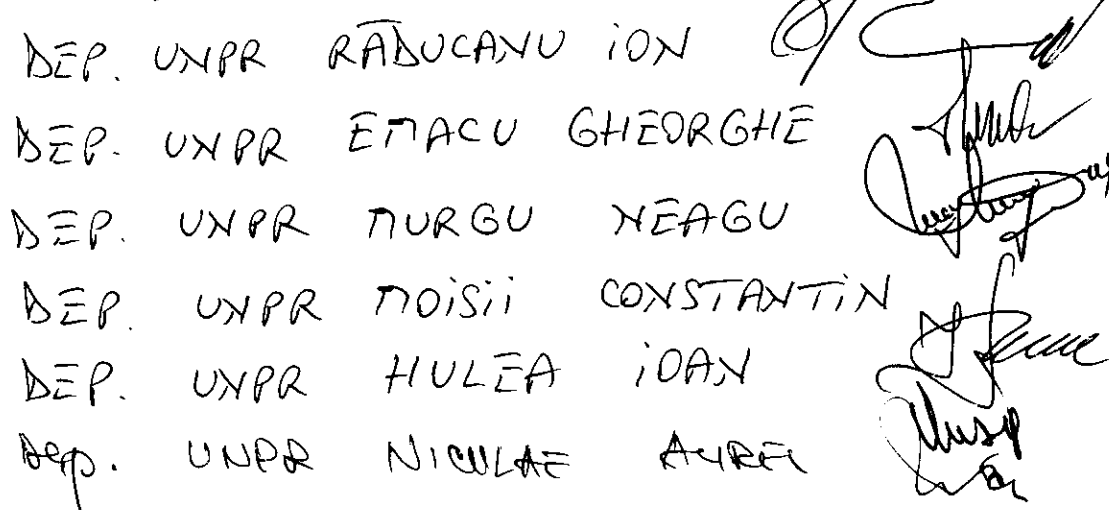 DEP. UNPR RĂDUCANU ION
DEP. UNPR EMACU GHEORGHE
DEP. UNPR MURGU NEAGU
DEP. UNPR MOISII CONSTANTIN
DEP. UNPR HULEA IOAN
Dep. UNPR NICULAE AUREL